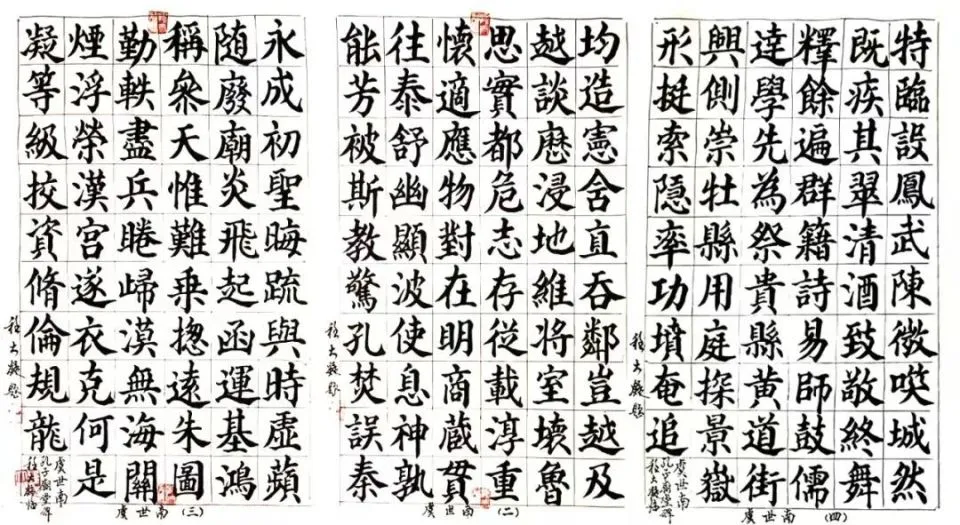 特臨設鳳武陳微城然
既疾其翠清酒致敬終舞
釋餘遍群籍詩易師鼓儒
達學先為祭貴縣黃道街
興側崇牡縣用庭探景嶽
形挺索隱率功墳奄追
虞世南
孔子廟堂碑
虞世南(四)
均造憲舍直吞鄰豈越及
越談歷浸地維將室壞魯
思實都危志存從載淳重
懷適應物對在明商藏貫
往泰舒幽顯波使息神孰
能芳被斯教驚孔焚誤秦
虞世南(二)
永成初聖晦疏與時虛蘋
随廢廟炎飛起函運基鴻
稱參天惟難乘揔遠朱圖
勤軼盡兵睠歸漠無海關
煙浮榮漢宮遂衣克何是
凝等級挍資脩倫規龍
虞世南
孔子廟堂碑
虞世南(三)